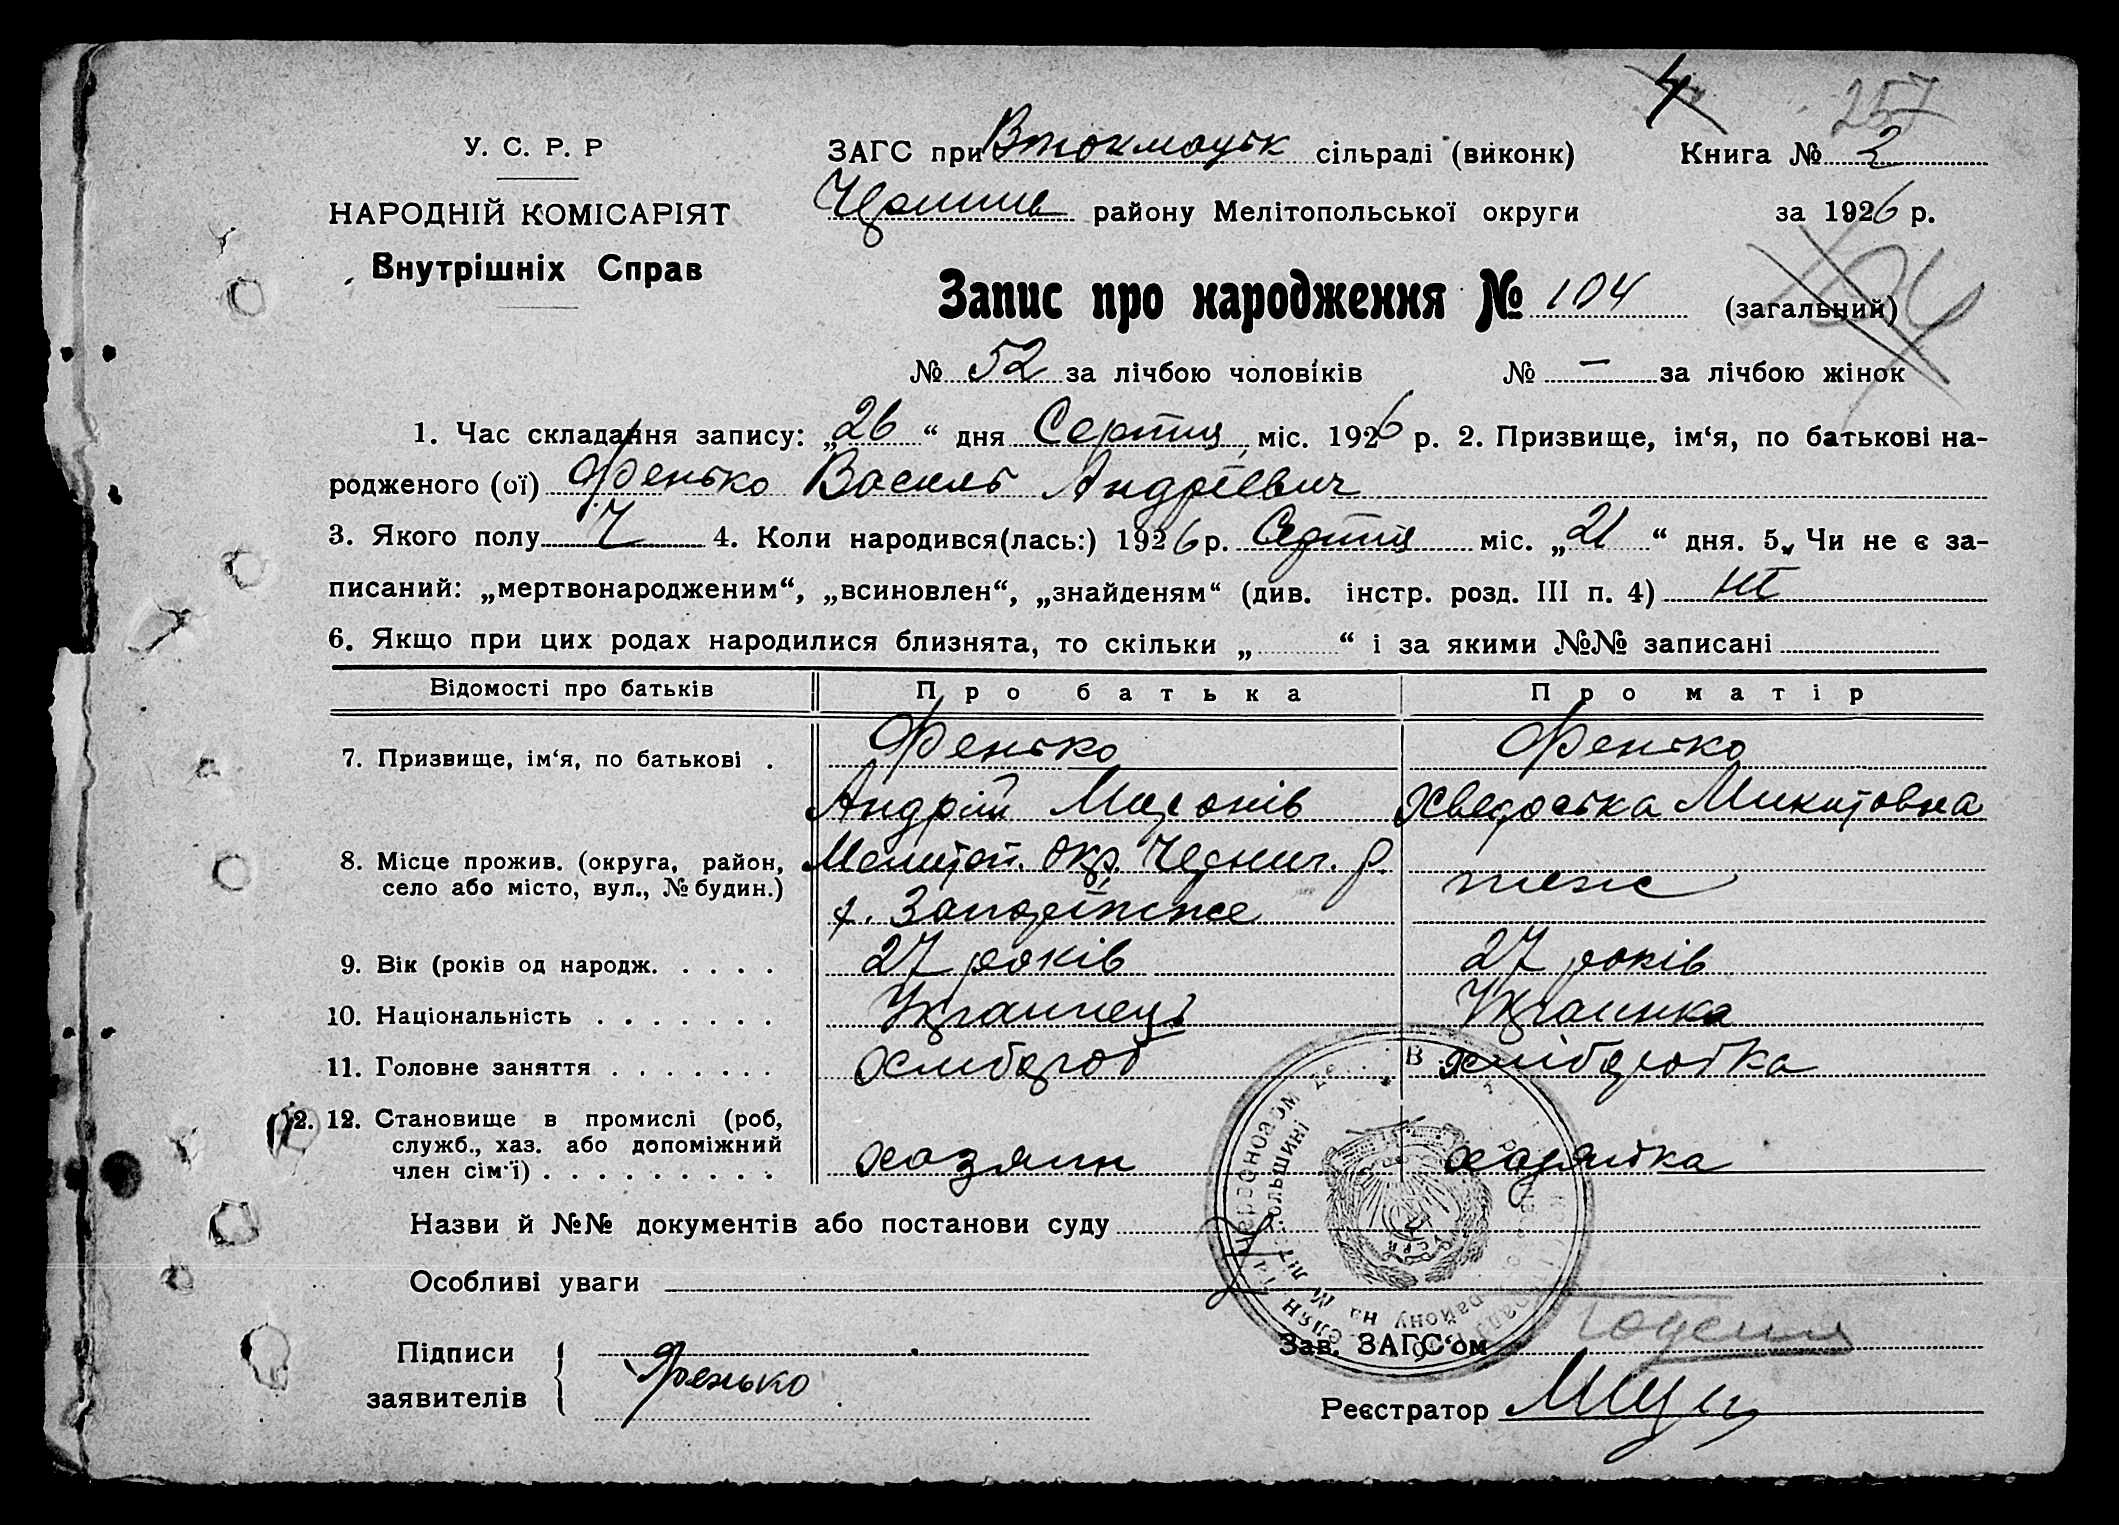 4 257
У. С. Р. Р
НАРОДНІЙ КОМІСАРІЯТ
Внутрішніх Справ
ЗАГС при Втокмацьк сільраді (виконк) Книга № 2
району Мелітопольської округи за 1926 р.
Запис про народження № 104 (загальний)
№ 52 за лічбою чоловіків № — за лічбою жінок
1. Час складання запису: „26“ дня Серпня міс. 1926 р. 2. Призвище, ім‘я, по батькові на-
родженого (ої) Фенько Василь Андрієвич
3. Якого полу Ч 4. Коли народився(лась:) 1926 р. Серпня міс. „21“ дня. 5. Чи не є за-
писаний: „мертвонародженим“, „всиновлен“, „знайденям“ (див. інстр. розд. III п. 4) ні
6. Якщо при цих родах народилися близнята, то скільки „ “ і за якими №№ записані
Відомості про батьків Про батька Про матір
7. Призвище, ім‘я, по батькові . Фенько Фенько
Андрій Миронів Хведоська Микитовна
8. Місце прожив. (округа, район, село або місто, вул., № будин.) Мелитоп. окр. р. теж
Запоріжже
9. Вік (років од народж. . . . . 27 років 27 років
10. Національність . . . . . . . Украинець Украинка
11. Головне заняття . . . . . . . Хлибороб хліборобка
2. 12. Становище в промислі (роб,
служб., хаз. або допоміжний
член сім‘ї) . . . . . . . . . хозяин хозяйка
Назви й №№ документів або постанови суду
Особливі уваги
Підписи
заявителів Фенько
Зав. ЗАГС‘ом
Реєстратор